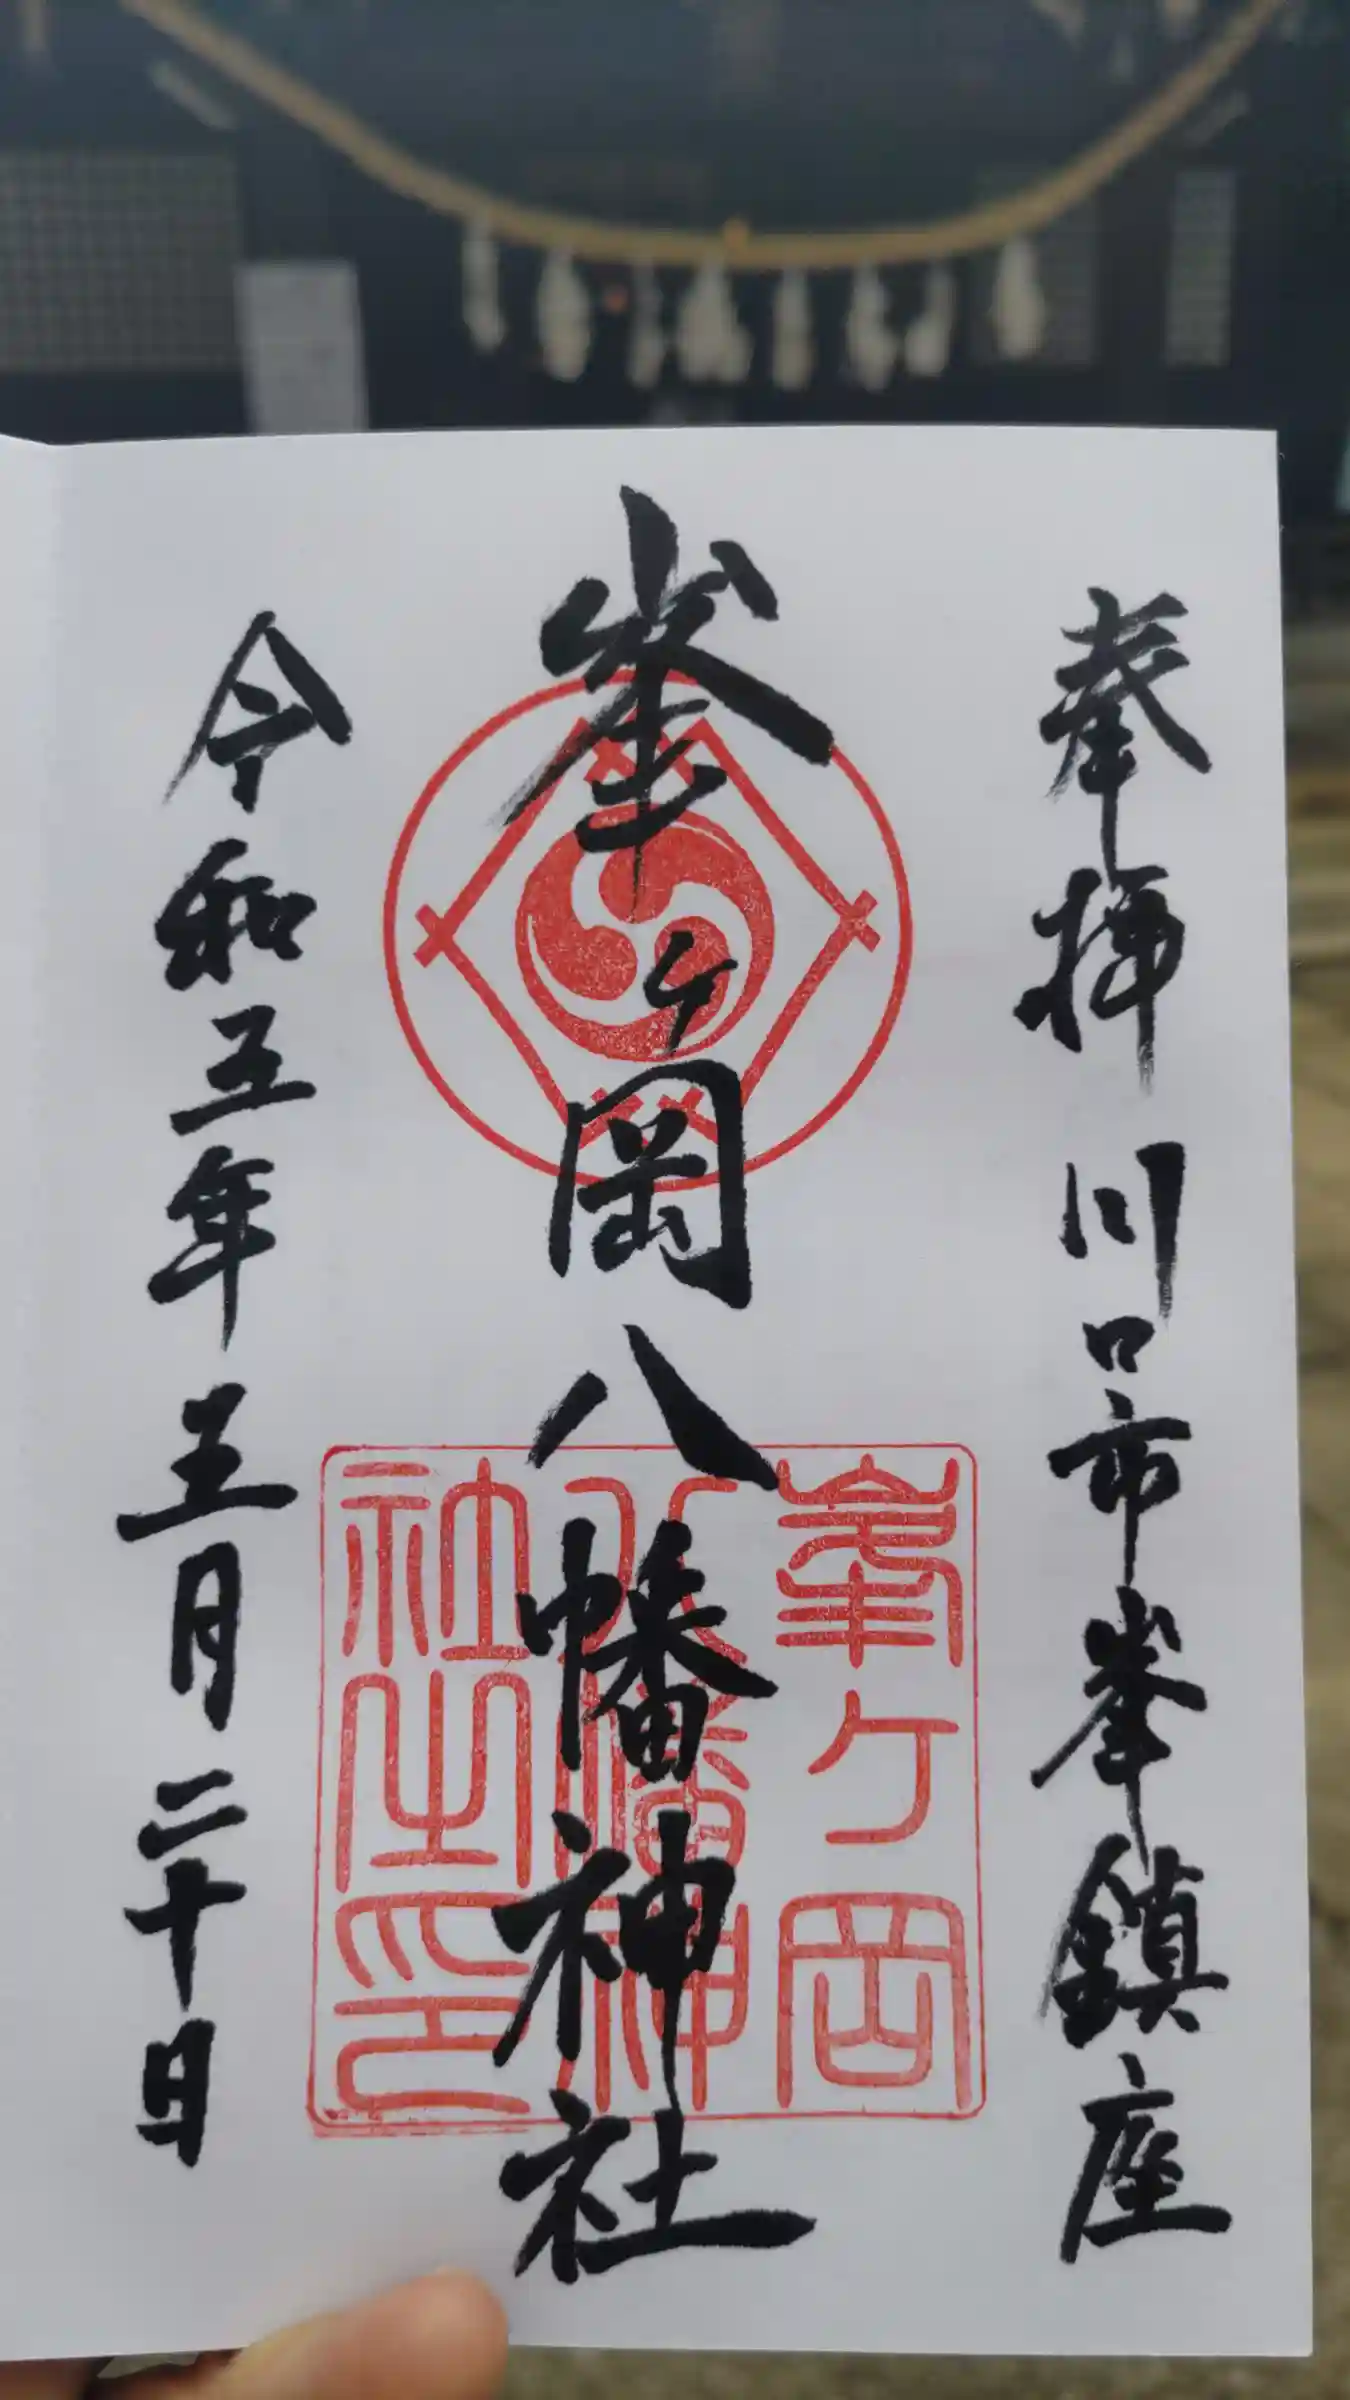 奉拝 川口市峯鎮座
峯ヶ岡八幡神社
峯ヶ岡
八幡神
社之印
令和五年五月二十日